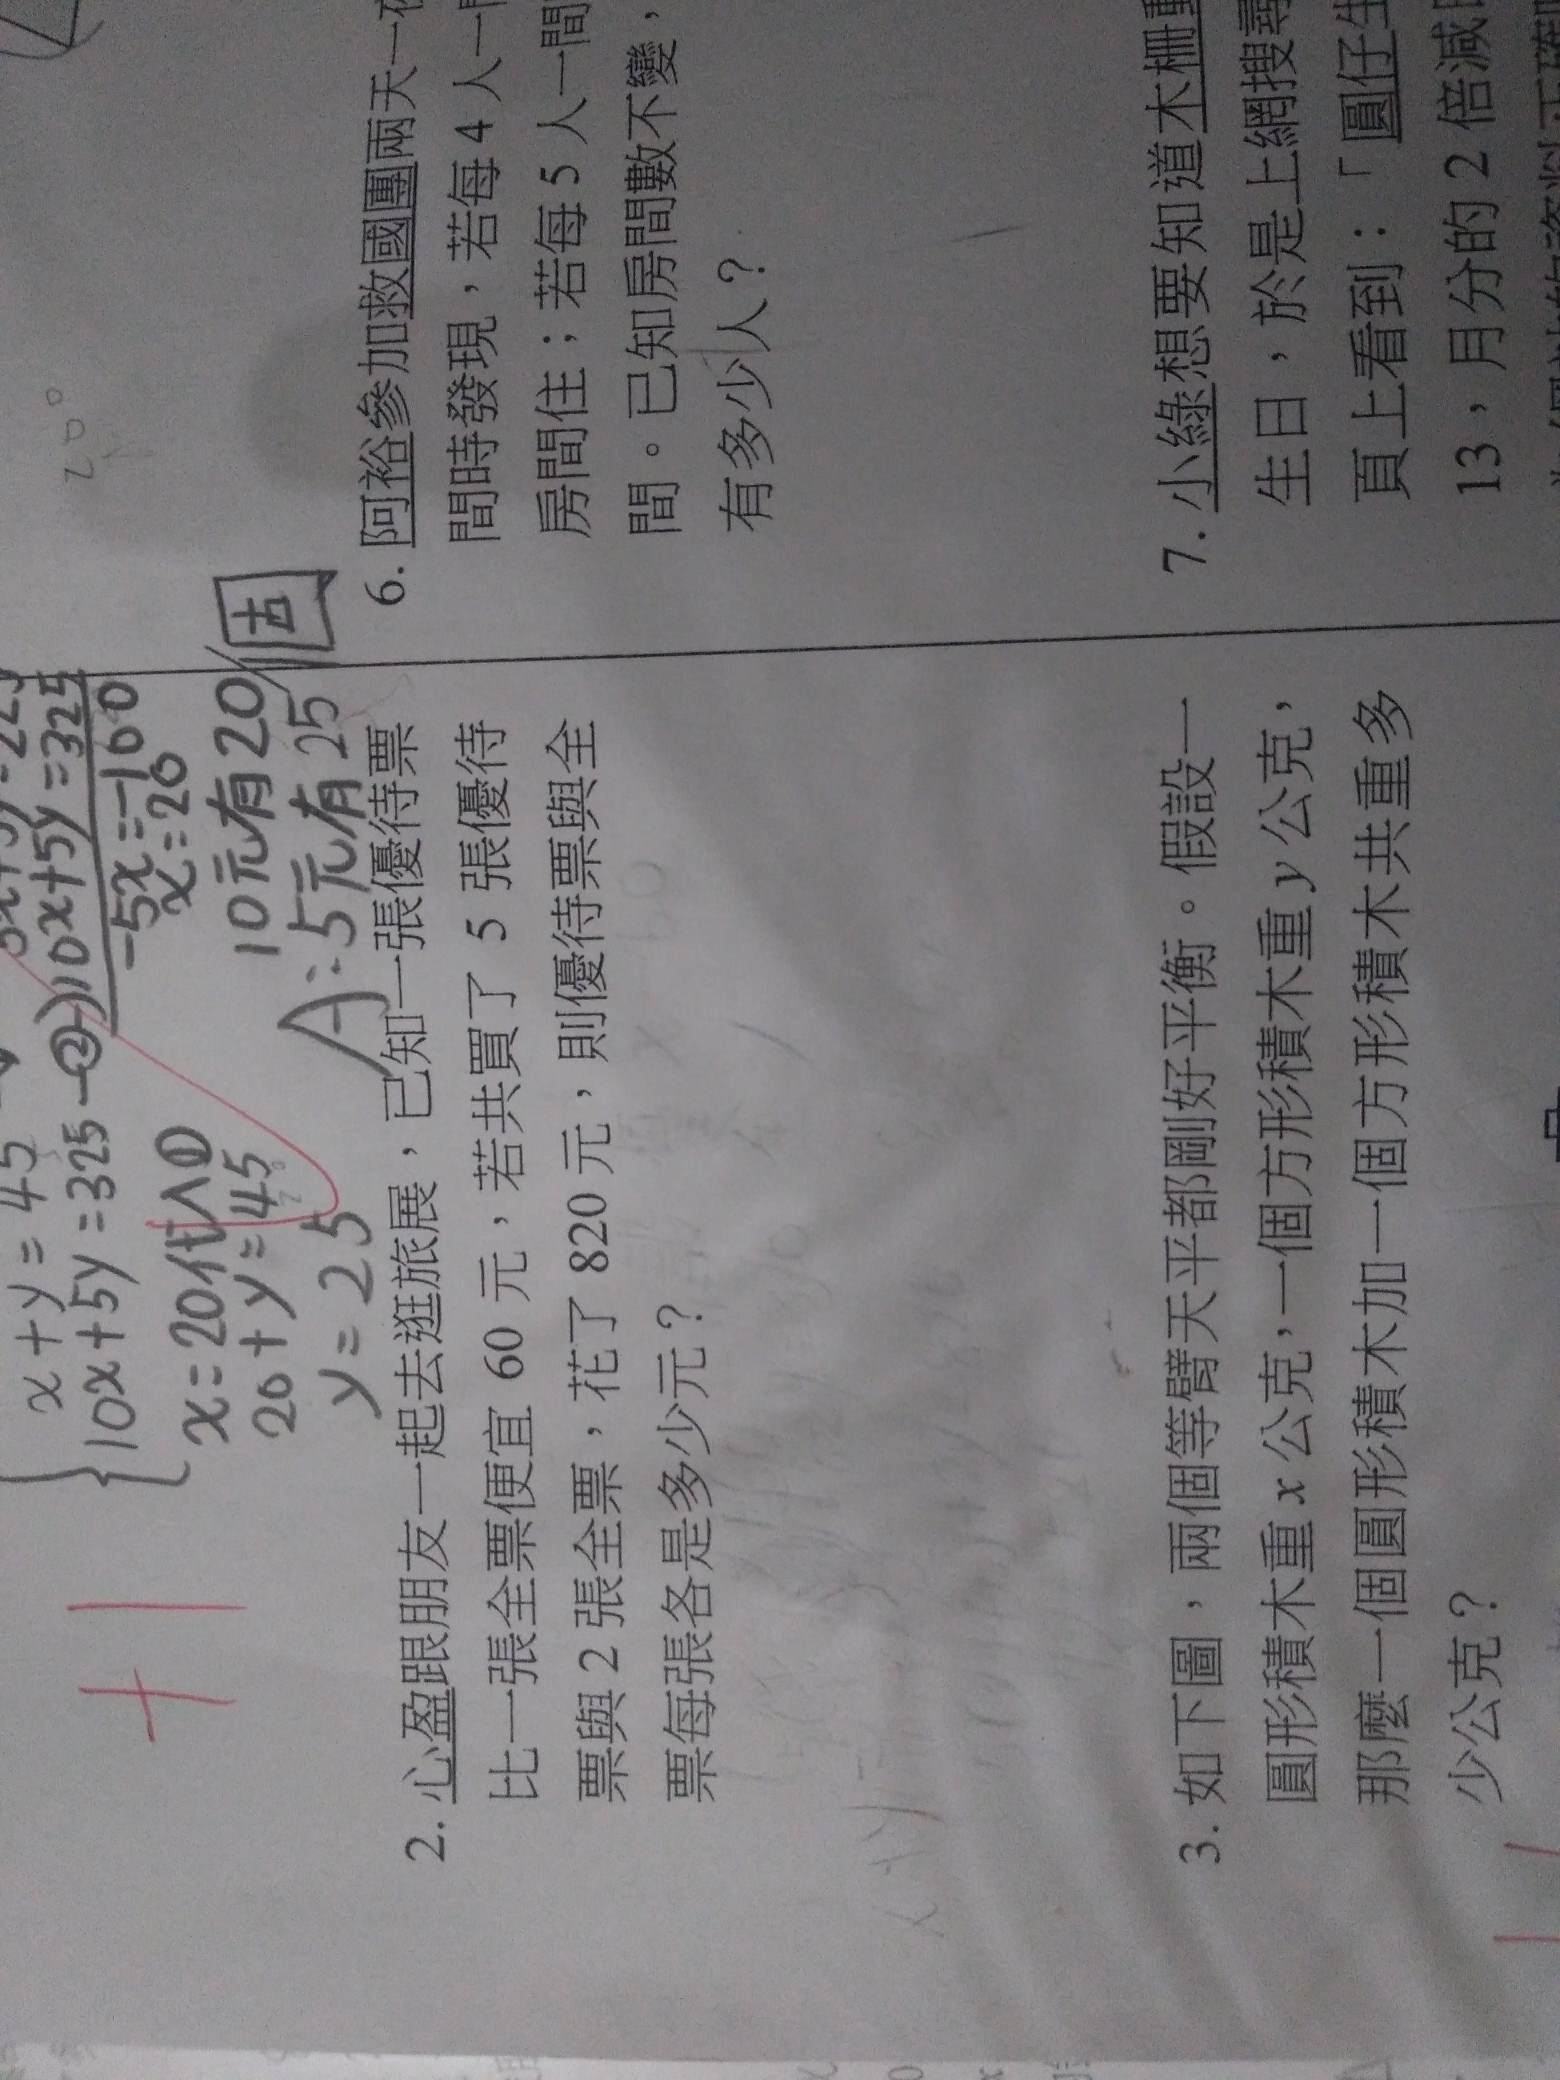 x+y=45
10x+5y=325-②
10x+5y=325
-5x=-100
x=20
x=20代入①
20+y=45
y=25
10元有20
A:5元有25
個
+1
2. 心盈跟朋友一起去逛旅展，已知一張優待票
比一張全票便宜 60 元，若共買了 5 張優待
票與 2 張全票，花了 820 元，則優待票與全
票每張各是多少元？
3. 如下圖，兩個等臂天平都剛好平衡。假設一
圓形積木重 x 公克，一個方形積木重 y 公克，
那麼一個圓形積木加一個方形積木共重多
少公克？
6. 阿裕參加救國團兩天一
間時發現，若每 4 人一
房間住；若每 5 人一間
間。已知房間數不變，
有多少人？
7. 小綠想要知道木柵
生日，於是上網搜尋
頁上看到：「圓仔生
13，月分的 2 倍減